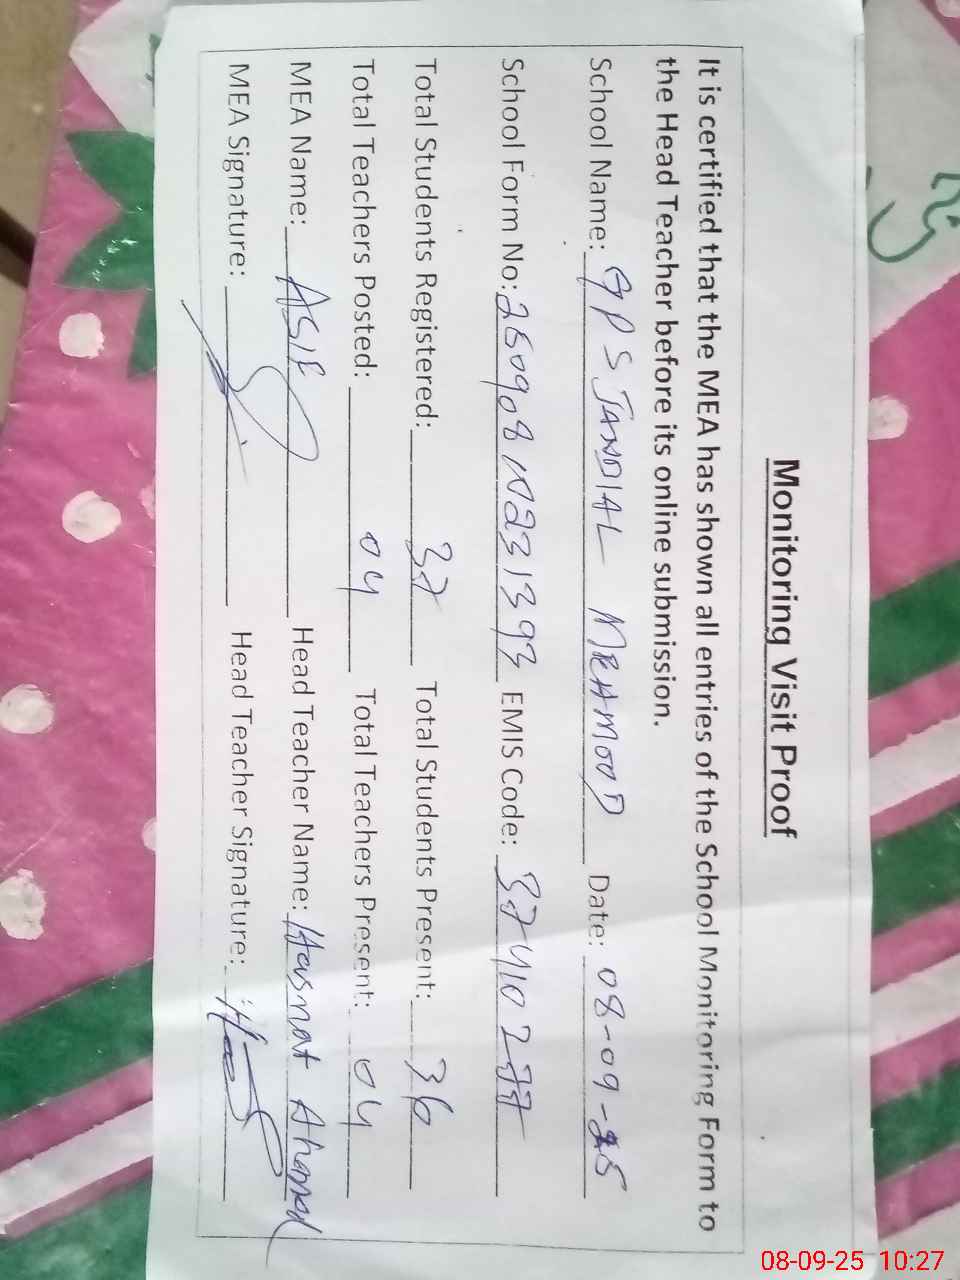 Monitoring Visit Proof
It is certified that the MEA has shown all entries of the School Monitoring Form to
the Head Teacher before its online submission.
School Name: GPS JANDIAL MEHMOOD Date: 08-09-25
School Form No: 25090810231393 EMIS Code: 37410277
Total Students Registered: 37 Total Students Present: 36
Total Teachers Posted: 04 Total Teachers Present: 04
MEA Name: ASIF Head Teacher Name: Hasnat Ahmad
MEA Signature: Head Teacher Signature:
08-09-25 10:27